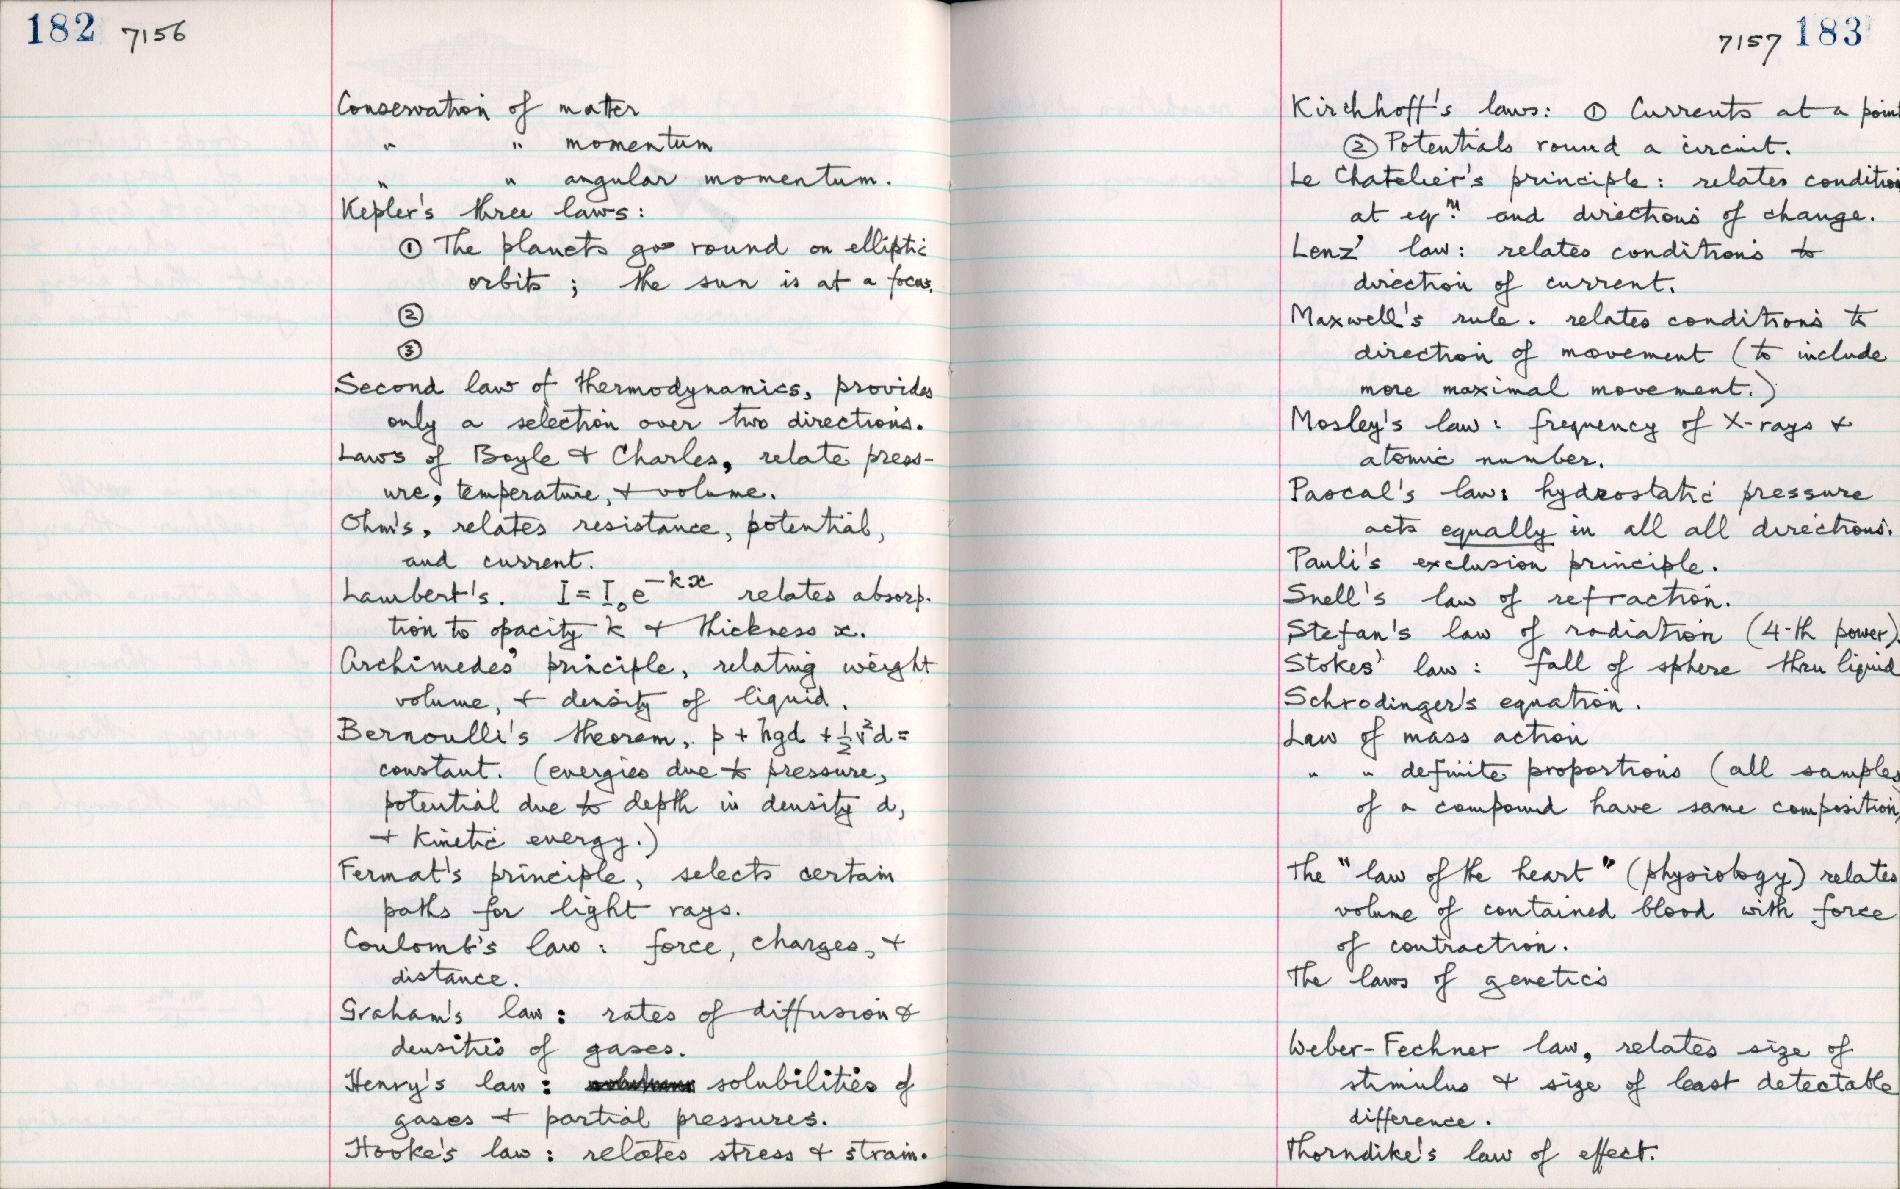 182 7156
Conservation of matter
" " momentum
" " angular momentum.
Kepler's three laws:
① The planets go round on elliptic
orbits; the sun is at a focus.
②
③
Second law of thermodynamics, provides
only a selection over two directions.
Laws of Boyle + Charles, relate press-
ure, temperature, + volume.
Ohm's, relates resistance, potential,
and current.
Lambert's. I = I₀e⁻ᵏˣ relates absorp-
tion to opacity k + thickness x.
Archimedes' principle, relating weight
volume, + density of liquid.
Bernoulli's theorem, p + hgd + ½v²d =
constant. (energies due to pressure,
potential due to depth in density d,
+ kinetic energy.)
Fermat's principle, selects certain
paths for light rays.
Coulomb's law: force, charges, +
distance.
Graham's law: rates of diffusion &
densities of gases.
Henry's law: solubilities of
gases + partial pressures.
Hooke's law: relates stress + strain.
7157 183
Kirchhoff's laws: ① Currents at a point
② Potentials round a circuit.
Le Chatelier's principle: relates condition
at eqᵐ. and directions of change.
Lenz' law: relates conditions to
direction of current.
Maxwell's rule. relates conditions to
direction of movement (to include
more maximal movement.)
Mosley's law: frequency of X-rays +
atomic number.
Pascal's law: hydrostatic pressure
acts equally in all all directions.
Pauli's exclusion principle.
Snell's law of refraction.
Stefan's law of radiation (4-th power).
Stokes' law: fall of sphere thru liquid
Schrodinger's equation.
Law of mass action
" " definite proportions (all samples
of a compound have same composition)
The "law of the heart" (physiology) relates
volume of contained blood with force
of contraction.
The laws of genetics
Weber-Fechner law, relates size of
stimulus + size of least detectable
difference.
Thorndike's law of effect.